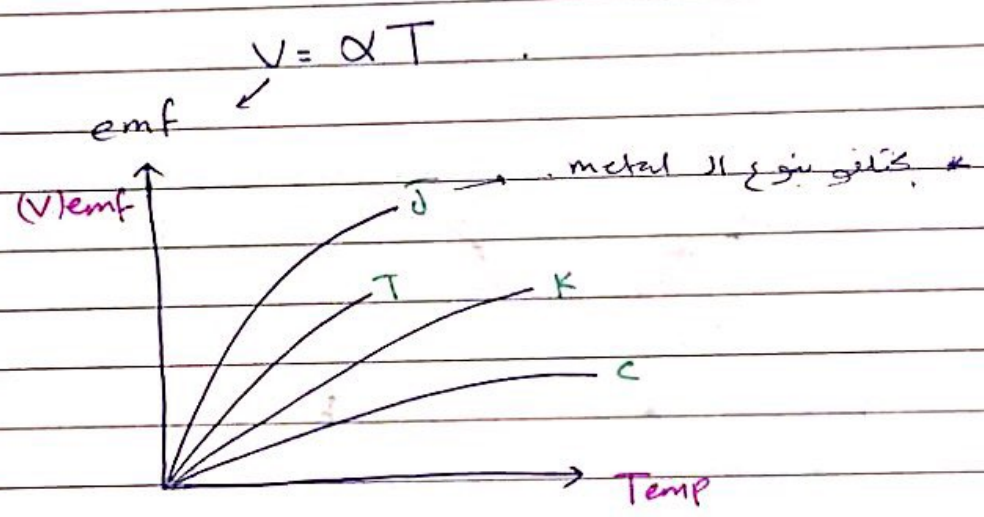 V = α T
emf
* بختلفو بنوع ال metal.
J
(V)emf
T
K
C
Temp